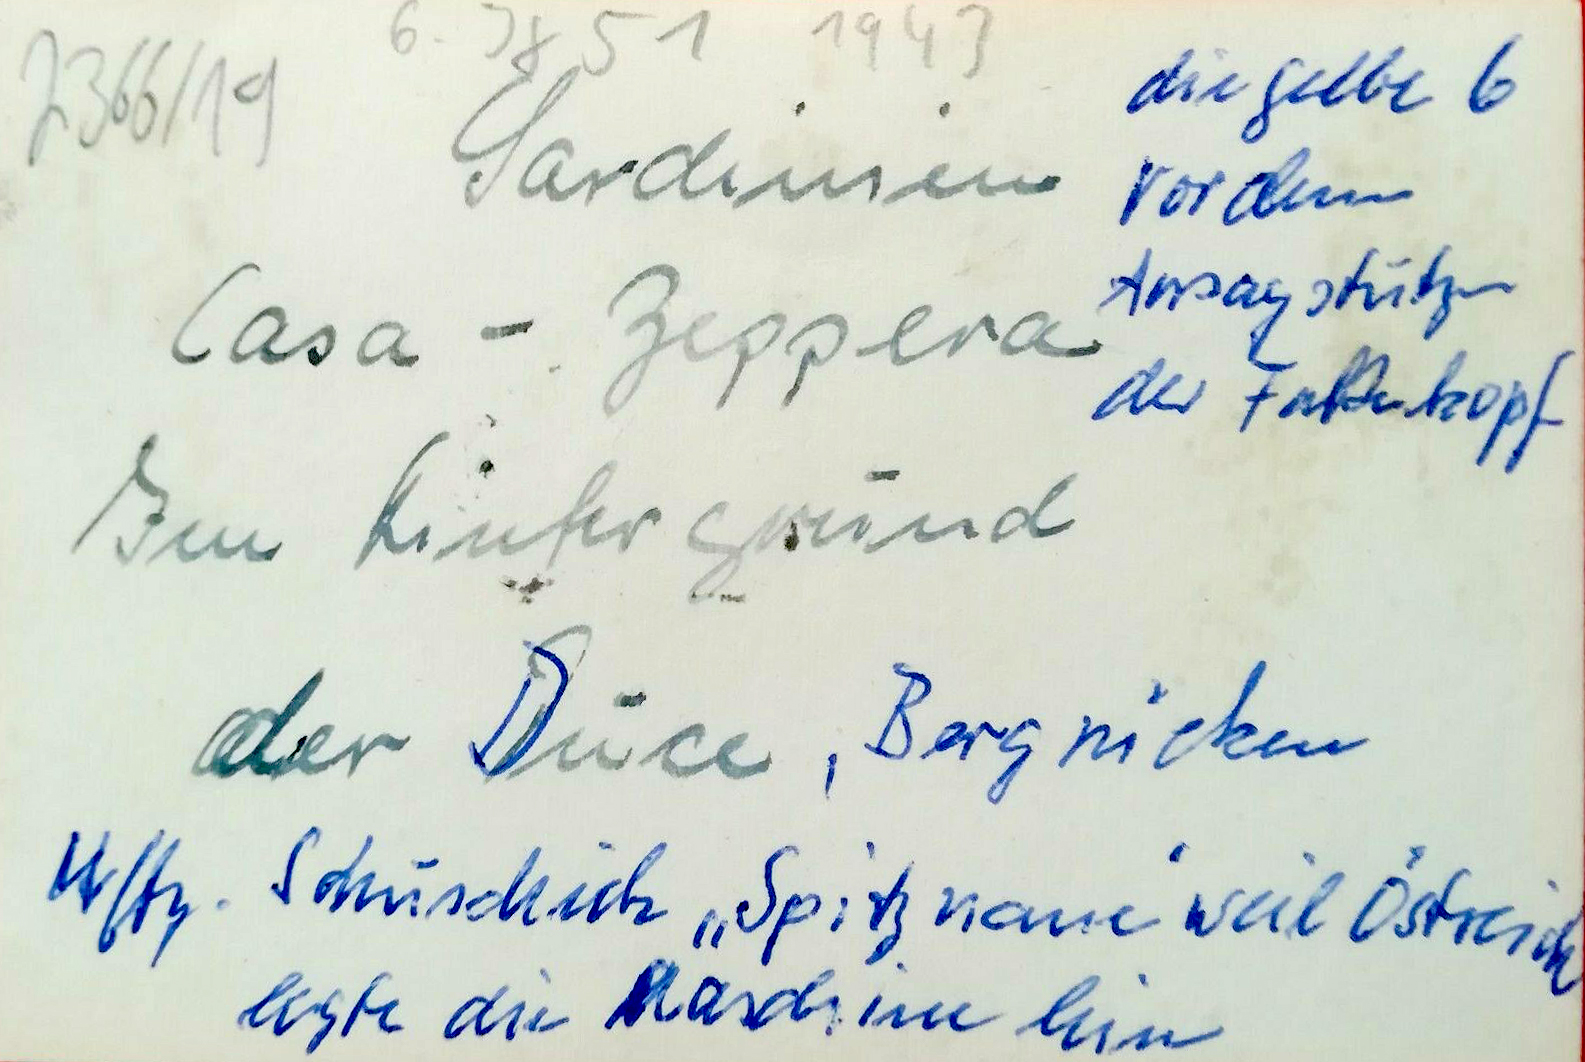 2366/19
6. JG 51 1943
Sardinien
Casa - Zeppera
Im Hintergrund
der Duce, Bergrücken
die gelbe 6
vor dem
Ansaugstutzen
der Falkenkopf
Uffz. Schuschick „Spitzname" weil Östreich
legte die Maschine hin